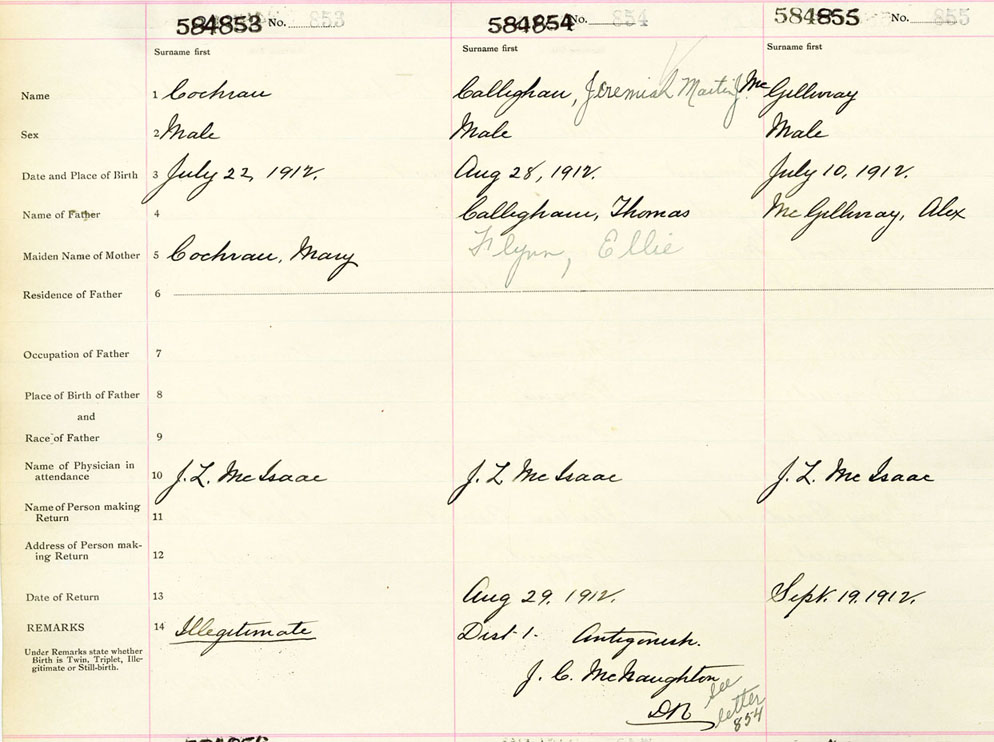 584853 No. 853 584854 No. 854 584855 No. 855
Surname first Surname first Surname first
Name 1 Cochran Calleghan, Jeremiah Martin J. Mc Gillivray
Sex 2 Male Male Male
Date and Place of Birth 3 July 22, 1912. Aug 28, 1912. July 10, 1912.
Name of Father 4 Calleghan, Thomas Mc Gillivray, Alex
Maiden Name of Mother 5 Cochran, Mary Flynn, Ellie
Residence of Father 6
Occupation of Father 7
Place of Birth of Father 8
and
Race of Father 9
Name of Physician in
attendance 10 J. L. Mc Isaac J. L Mc Isaac J. L. Mc Isaac
Name of Person making
Return 11
Address of Person mak-
ing Return 12
Date of Return 13 Aug 29, 1912. Sept. 19, 1912.
REMARKS 14 Illegitimate Dist 1. Antigonish.
Under Remarks state whether
Birth is Twin, Triplet, Ille-
gitimate or Still-birth.
J. C. McNaughton
DR
see
letter
854